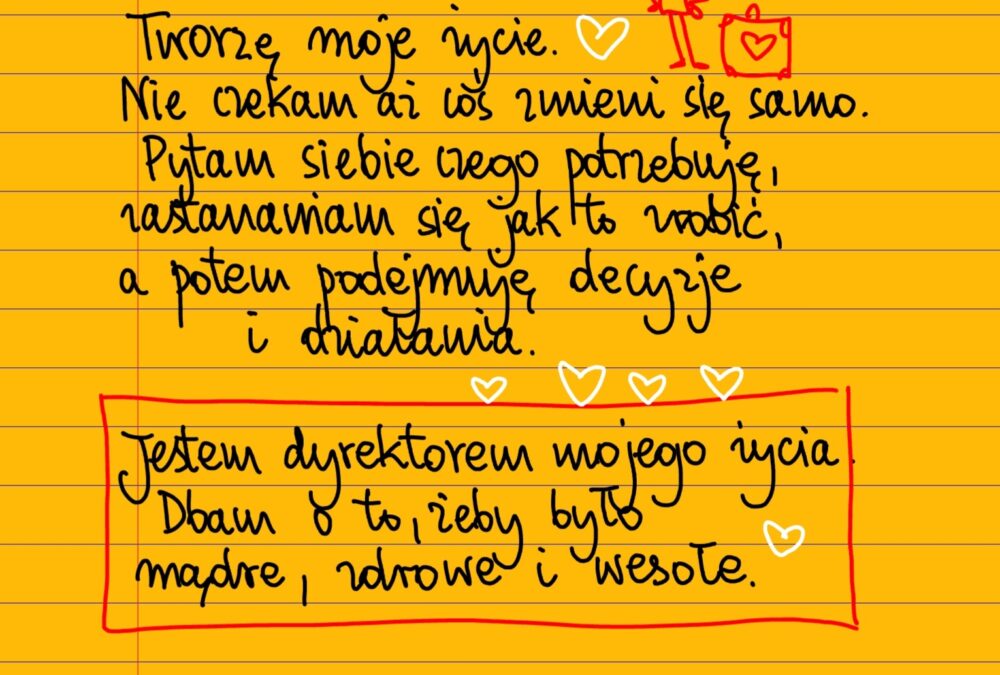 Tworzę moje życie.
Nie czekam aż coś zmieni się samo.
Pytam siebie czego potrzebuję,
zastanawiam się jak to zrobić,
a potem podejmuję decyzje
i działania.
Jestem dyrektorem mojego życia.
Dbam o to, żeby było
mądre, zdrowe i wesołe.